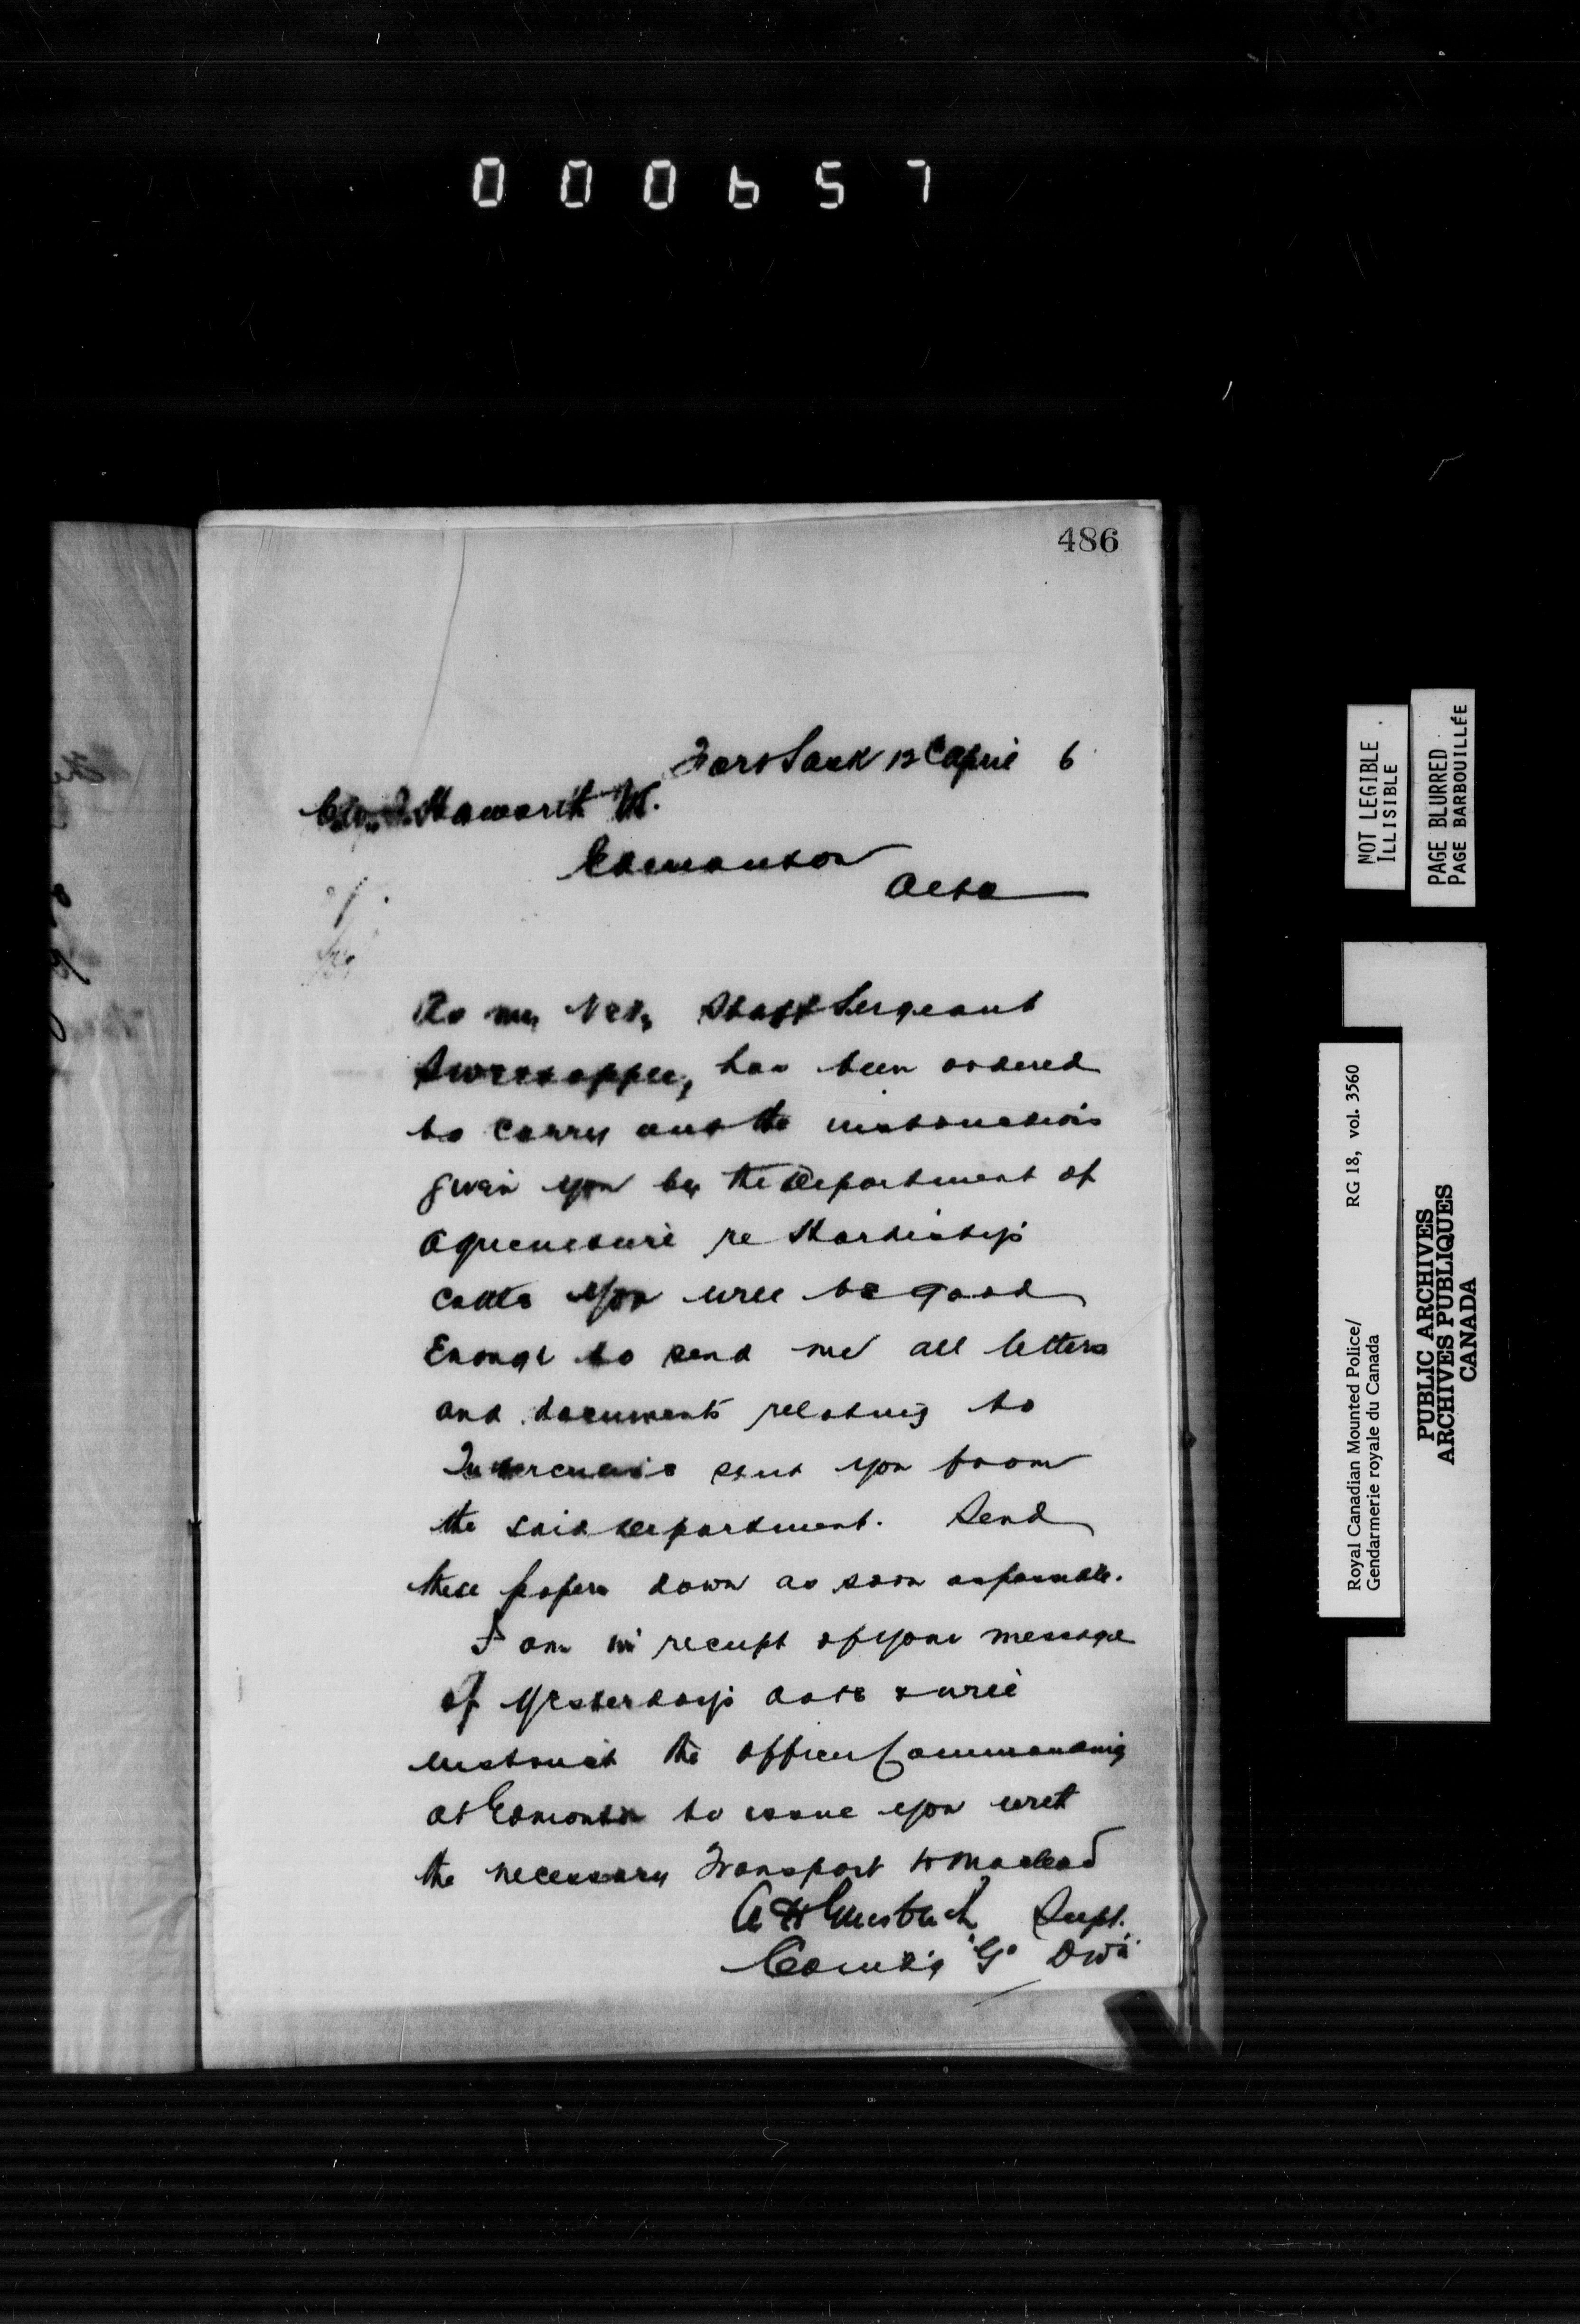 000657
486
Fort Sask 12 April 6
Haworth
Edmonton
Alta
As my Vety Staff Sergeant
Sweetapple, has been ordered
to carry out the instructions
given you by the Department of
Agriculture re Hardisty's
cattle you will be good
Enough to send me all letters
and documents relating to
Tuberculosis sent you from
the said Department. Send
these papers down as soon as possible.
I am in receipt of your message
of yesterdays date & will
instruct the Officer Commanding
at Edmonton to issue you with
the necessary Transport to Macleod
A H Griesbach Supt.
Comdg "G" Divn
NOT LEGIBLE
ILLISIBLE
PAGE BLURRED
PAGE BARBOUILLÉE
Royal Canadian Mounted Police/ RG 18, vol. 3560
Gendarmerie royale du Canada
PUBLIC ARCHIVES
ARCHIVES PUBLIQUES
CANADA